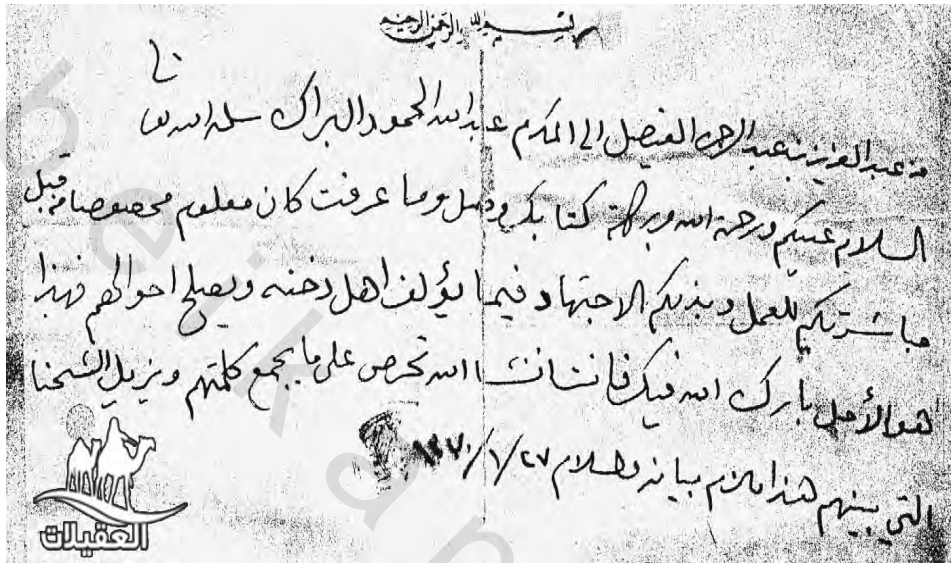 بسم الله الرحمن الرحيم
من عبدالعزيز بن عبدالرحمن الفيصل الى المكرم عبدالله المحمود البراك سلمه الله تعا
السلام عليكم ورحمة الله وبركاته كتابكم وصل وما عرفت كان معلوم مخصوصا من قبل
مباشرتكم للعمل وبذلكم الاجتهاد فيما يؤلف اهل دخنه ويصلح احوالهم فهذا
هو الأمل بارك الله فيك فانت انشا الله تحرص على ما يجمع كلمتهم ويزيل الشحنا
التي بينهم هذا مالزم بيانه والسلام ١٣٧٠/١/٢٧
العقيلات